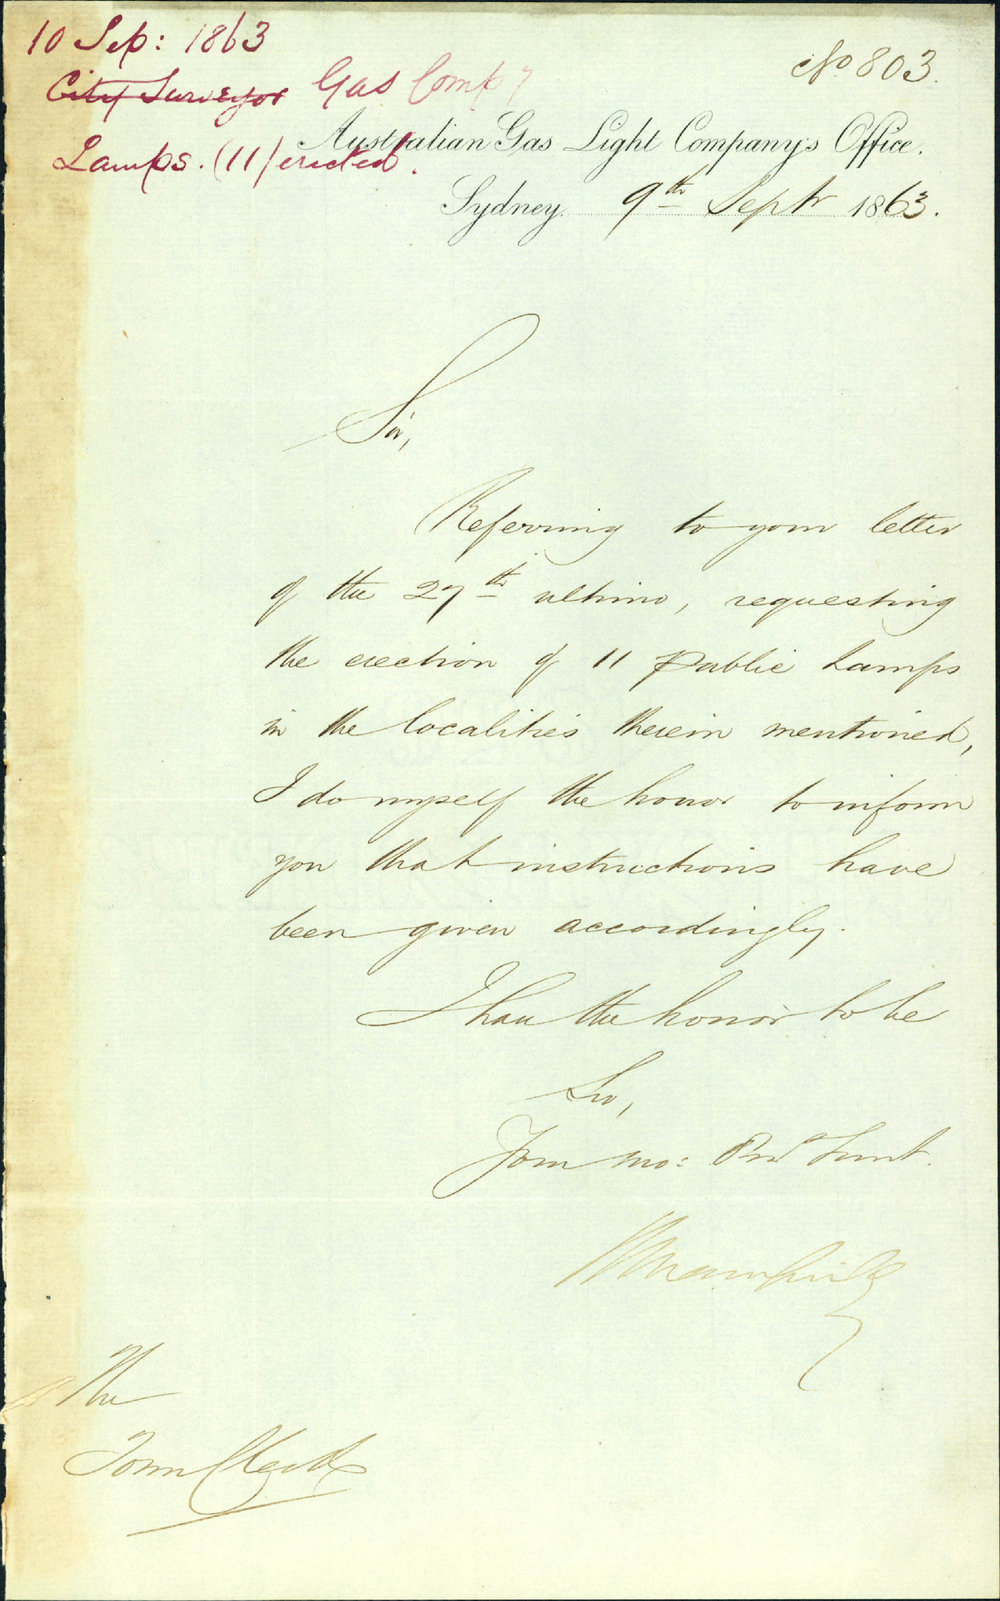 10 Sep: 1863
No 803.
City Surveyor Gas Compy
Lamps. (11) erected.
Australian Gas Light Company's Office.
Sydney. 9th Septr 1863.
Sir,
Referring to your letter
of the 27th ultimo, requesting
the erection of 11 Public Lamps
in the localities therein mentioned,
I do myself the honor to inform
you that instructions have
been given accordingly.
I have the honor to be
Sir,
Your mo: Obdt Servt.
The
Town Clerk